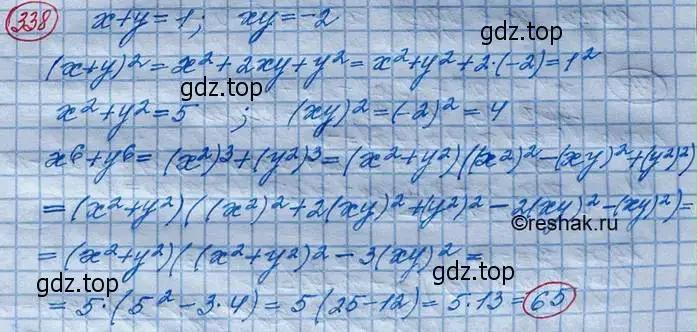 338 x+y=1; xy=-2
gdz.top
(x+y)²=x²+2xy+y²=x²+y²+2·(-2)=1²
gdz.top
x²+y²=5 ; (xy)²=(-2)²=4
gdz.top
x⁶+y⁶= (x²)³+(y²)³=(x²+y²)((x²)²-(xy)²+(y²)²)
gdz.top
=(x²+y²)((x²)²+2(xy)²+(y²)²-2(xy)²-(xy)²)=
©reshak.ru
=(x²+y²)((x²+y²)²-3(xy)²=
gdz.top
=5·(5²-3·4)=5(25-12)=5·13=65
gdz.top